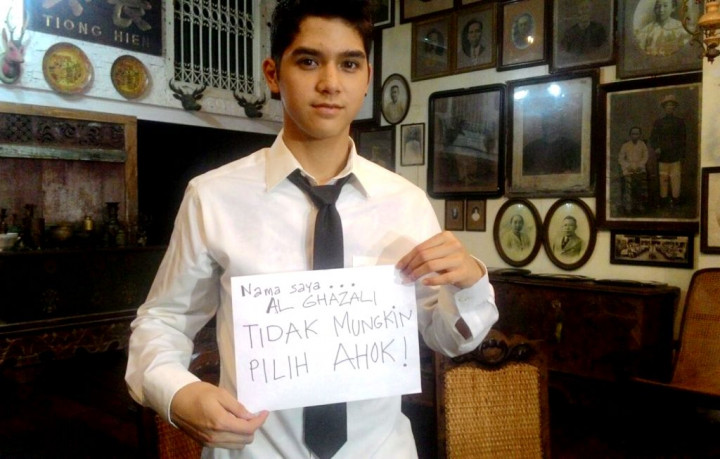 TIONG HIEN
Nama saya ...
AL GHAZALI
TIDAK MUNGKIN
PILIH AHOK!